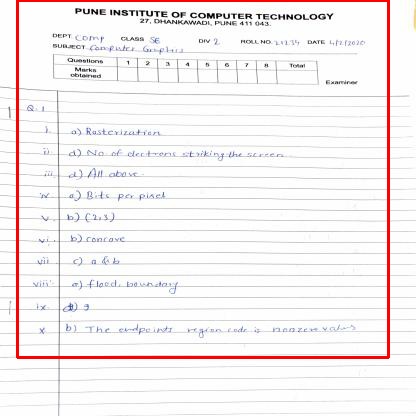 PUNE INSTITUTE OF COMPUTER TECHNOLOGY
27, DHANKAWADI, PUNE 411 043.
DEPT Comp CLASS SE DIV 2 ROLL NO. 21234 DATE 4/2/2020
SUBJECT Computer Graphics
Questions 1 2 3 4 5 6 7 8 Total
Marks obtained
Examiner
Q.1
i. a) Rasterization
ii. d) No. of electrons striking the screen
iii. d) All above.
iv. a) Bits per pixel
v. b) (2,3)
vi. b) concave
vii. c) a & b
viii. a) flood, boundary
ix. d) 9
x b) The endpoints region code is nonzero values